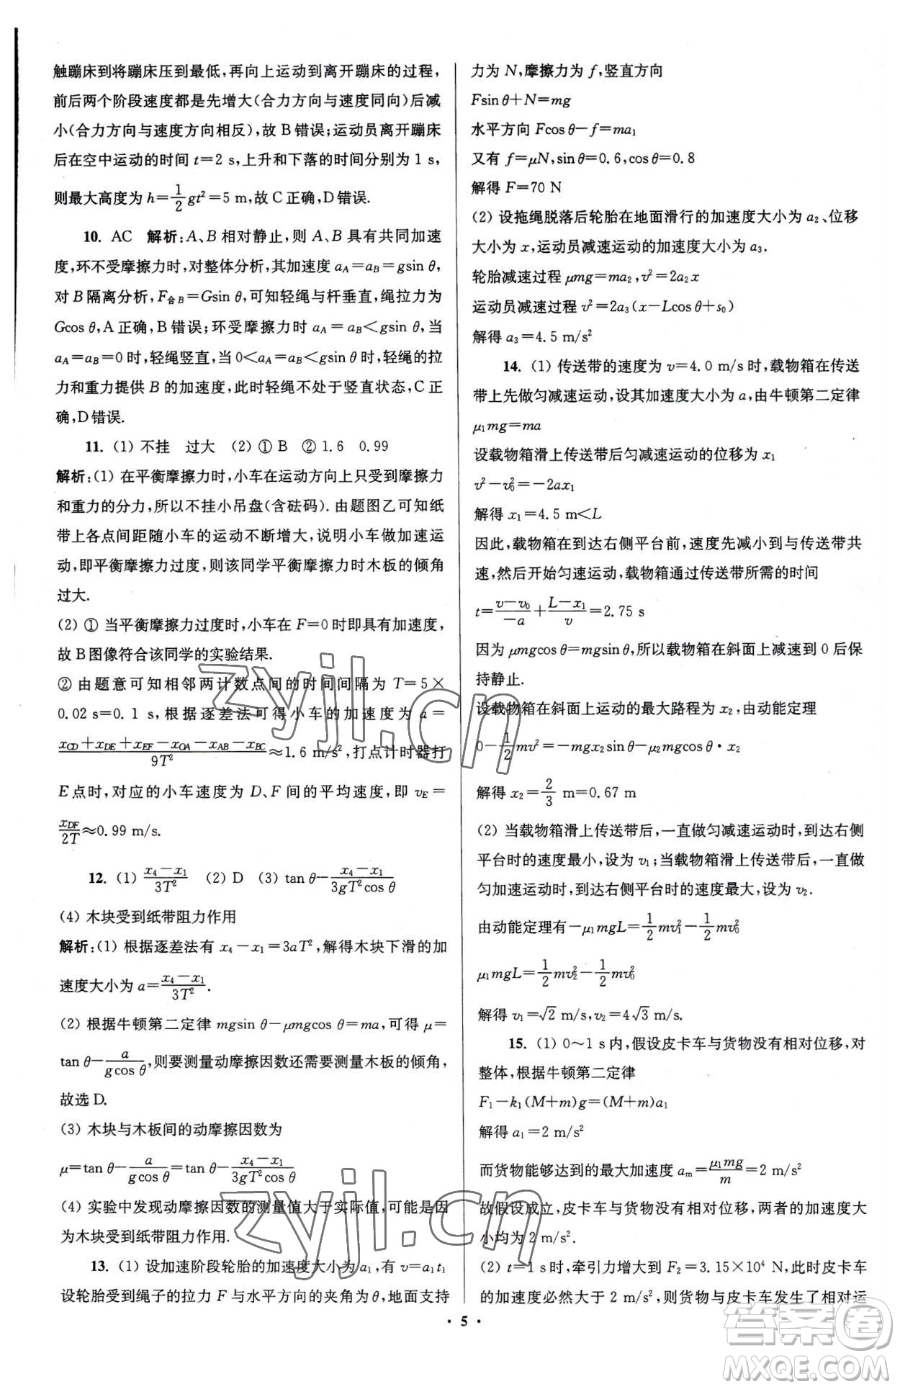 触蹦床到将蹦床压到最低,再向上运动到离开蹦床的过程,
前后两个阶段速度都是先增大(合力方向与速度同向)后减
小(合力方向与速度方向相反),故 B 错误;运动员离开蹦床
后在空中运动的时间 t=2 s,上升和下落的时间均为 1 s,
则最大高度为 h=\frac{1}{2}gt²=5 m,故 C 正确,D 错误.
10. AC 解析:A、B 相对静止,则 A、B 具有共同加速
度,环不受摩擦力时,对整体分析,其加速度 a_A=a_B=gsin θ,
对 B 隔离分析,F_{合B}=Gsin θ,可知轻绳与杆垂直,绳拉力为
Gcos θ,A 正确,B 错误;环受摩擦力时 a_A=a_B<gsin θ,当
a_A=a_B=0 时,轻绳竖直,当 0<a_A=a_B<gsin θ,轻绳的拉
力和重力提供 B 的加速度,此时轻绳不处于竖直状态,C 正
确,D 错误.
11. (1) 不挂 过大 (2) ① B ② 1.6 0.99
解析:(1) 在平衡摩擦力时,小车在运动方向上只受到摩擦力
和重力的分力,所以不挂小吊盘(含砝码).由题图乙可知纸
带上各点间距随小车的运动不断增大,说明小车做加速运
动,即平衡摩擦力时,则该同学平衡摩擦力时木板的倾角
过大.
(2) ① 当平衡摩擦力过度时,小车在 F=0 时即具有加速度,
故 B 图像符合该同学的实验结果.
② 由题意可知相邻两计数点间的时间间隔为 T=5×
0.02 s=0.1 s,根据逐差法可得小车的加速度为 a=
\frac{x_{CD}+x_{DE}+x_{EF}-x_{OA}-x_{AB}-x_{BC}}{9T²}≈1.6 m/s²,打点计时器打
E 点时,对应的小车速度为 D、F 间的平均速度,即 v_E=
\frac{x_{DF}}{2T}≈0.99 m/s.
12. (1) \frac{x_4-x_1}{3T²} (2) D (3) tan θ-\frac{x_4-x_1}{3gT²cos θ}
(4) 木块受到纸带阻力作用
解析:(1) 根据逐差法有 x_4-x_1=3aT²,解得木块下滑的加
速度大小为 a=\frac{x_4-x_1}{3T²}.
(2) 根据牛顿第二定律 mgsin θ-μmgcos θ=ma,可得 μ=
tan θ-\frac{a}{gcos θ},则要测量动摩擦因数还需测量木板的倾角,
故选 D.
(3) 木块与木板间的动摩擦因数为
μ=tan θ-\frac{a}{gcos θ}=tan θ-\frac{x_4-x_1}{3gT²cos θ}
(4) 实验中发现动摩擦因数的测量值大于实际值,可能因为
木块受到纸带阻力作用.
13. (1) 设加速阶段轮胎的加速度大小为 a_1,有 v=a_1t_1
设轮胎受到绳子的拉力 F 与水平方向的夹角为 θ,地面支持
力为 N,摩擦力为 f,竖直方向
Fsin θ+N=mg
水平方向 Fcos θ-f=ma_1
又有 f=μN,sin θ=0.6,cos θ=0.8
解得 F=70 N
(2) 设拖绳脱落后轮胎在地面滑行的加速度大小为 a_2、位移
大小为 x,运动员减速运动的加速度大小为 a_3.
轮胎减速过程 μmg=ma_2,v²=2a_2x
运动员减速过程 v²=2a_3(x-Lcos θ+s_0)
解得 a_3=4.5 m/s²
14. (1) 传送带的速度为 v=4.0 m/s 时,载物箱在传送
带上先做匀减速运动,设其加速度大小为 a,由牛顿第二定律
μ_1mg=ma
设载物箱滑上传送带后匀减速运动的位移为 x_1
v²-v_0²=-2ax_1
解得 x_1=4.5 m<L
因此,载物箱在到达右侧平台前,速度先减小到与传送带共
速,然后开始匀速运动,载物箱通过传送带所需的时间
t=\frac{v-v_0}{-a}+\frac{L-x_1}{v}=2.75 s
因为 μmgcos θ=mgsin θ,所以载物箱在斜面上减速到 0 后保
持静止.
设载物箱在斜面上运动的最大路程为 x_2,由动能定理
0-\frac{1}{2}mv²=-mgx_2sin θ-μ_2mgcos θ·x_2
解得 x_2=\frac{2}{3} m=0.67 m
(2) 当载物箱滑上传送带后,一直做匀减速运动时,到达右侧
平台时的速度最小,设为 v_1;当载物箱滑上传送带后,一直做
匀加速运动时,到达右侧平台时的速度最大,设为 v_2.
由动能定理有 -μ_1mgL=\frac{1}{2}mv_1²-\frac{1}{2}mv_0²
μ_1mgL=\frac{1}{2}mv_2²-\frac{1}{2}mv_0²
解得 v_1=√2 m/s,v_2=4√3 m/s.
15. (1) 0～1 s 内,假设皮卡车与货物没有相对位移,对
整体,根据牛顿第二定律
F_1-k_1(M+m)g=(M+m)a_1
解得 a_1=2 m/s²
而货物能够达到的最大加速度 a_m=\frac{μ_1mg}{m}=2 m/s²
故假设成立,皮卡车与货物没有相对位移,两者的加速度大
小均为 2 m/s².
(2) t=1 s 时,牵引力增大到 F_2=3.15×10⁴ N,此时皮卡车
的加速度必然大于 2 m/s²,则货物与皮卡车发生了相对运
· 5 ·
zyjl.cn
zyjl.cn
答案圈
MXQE.COM